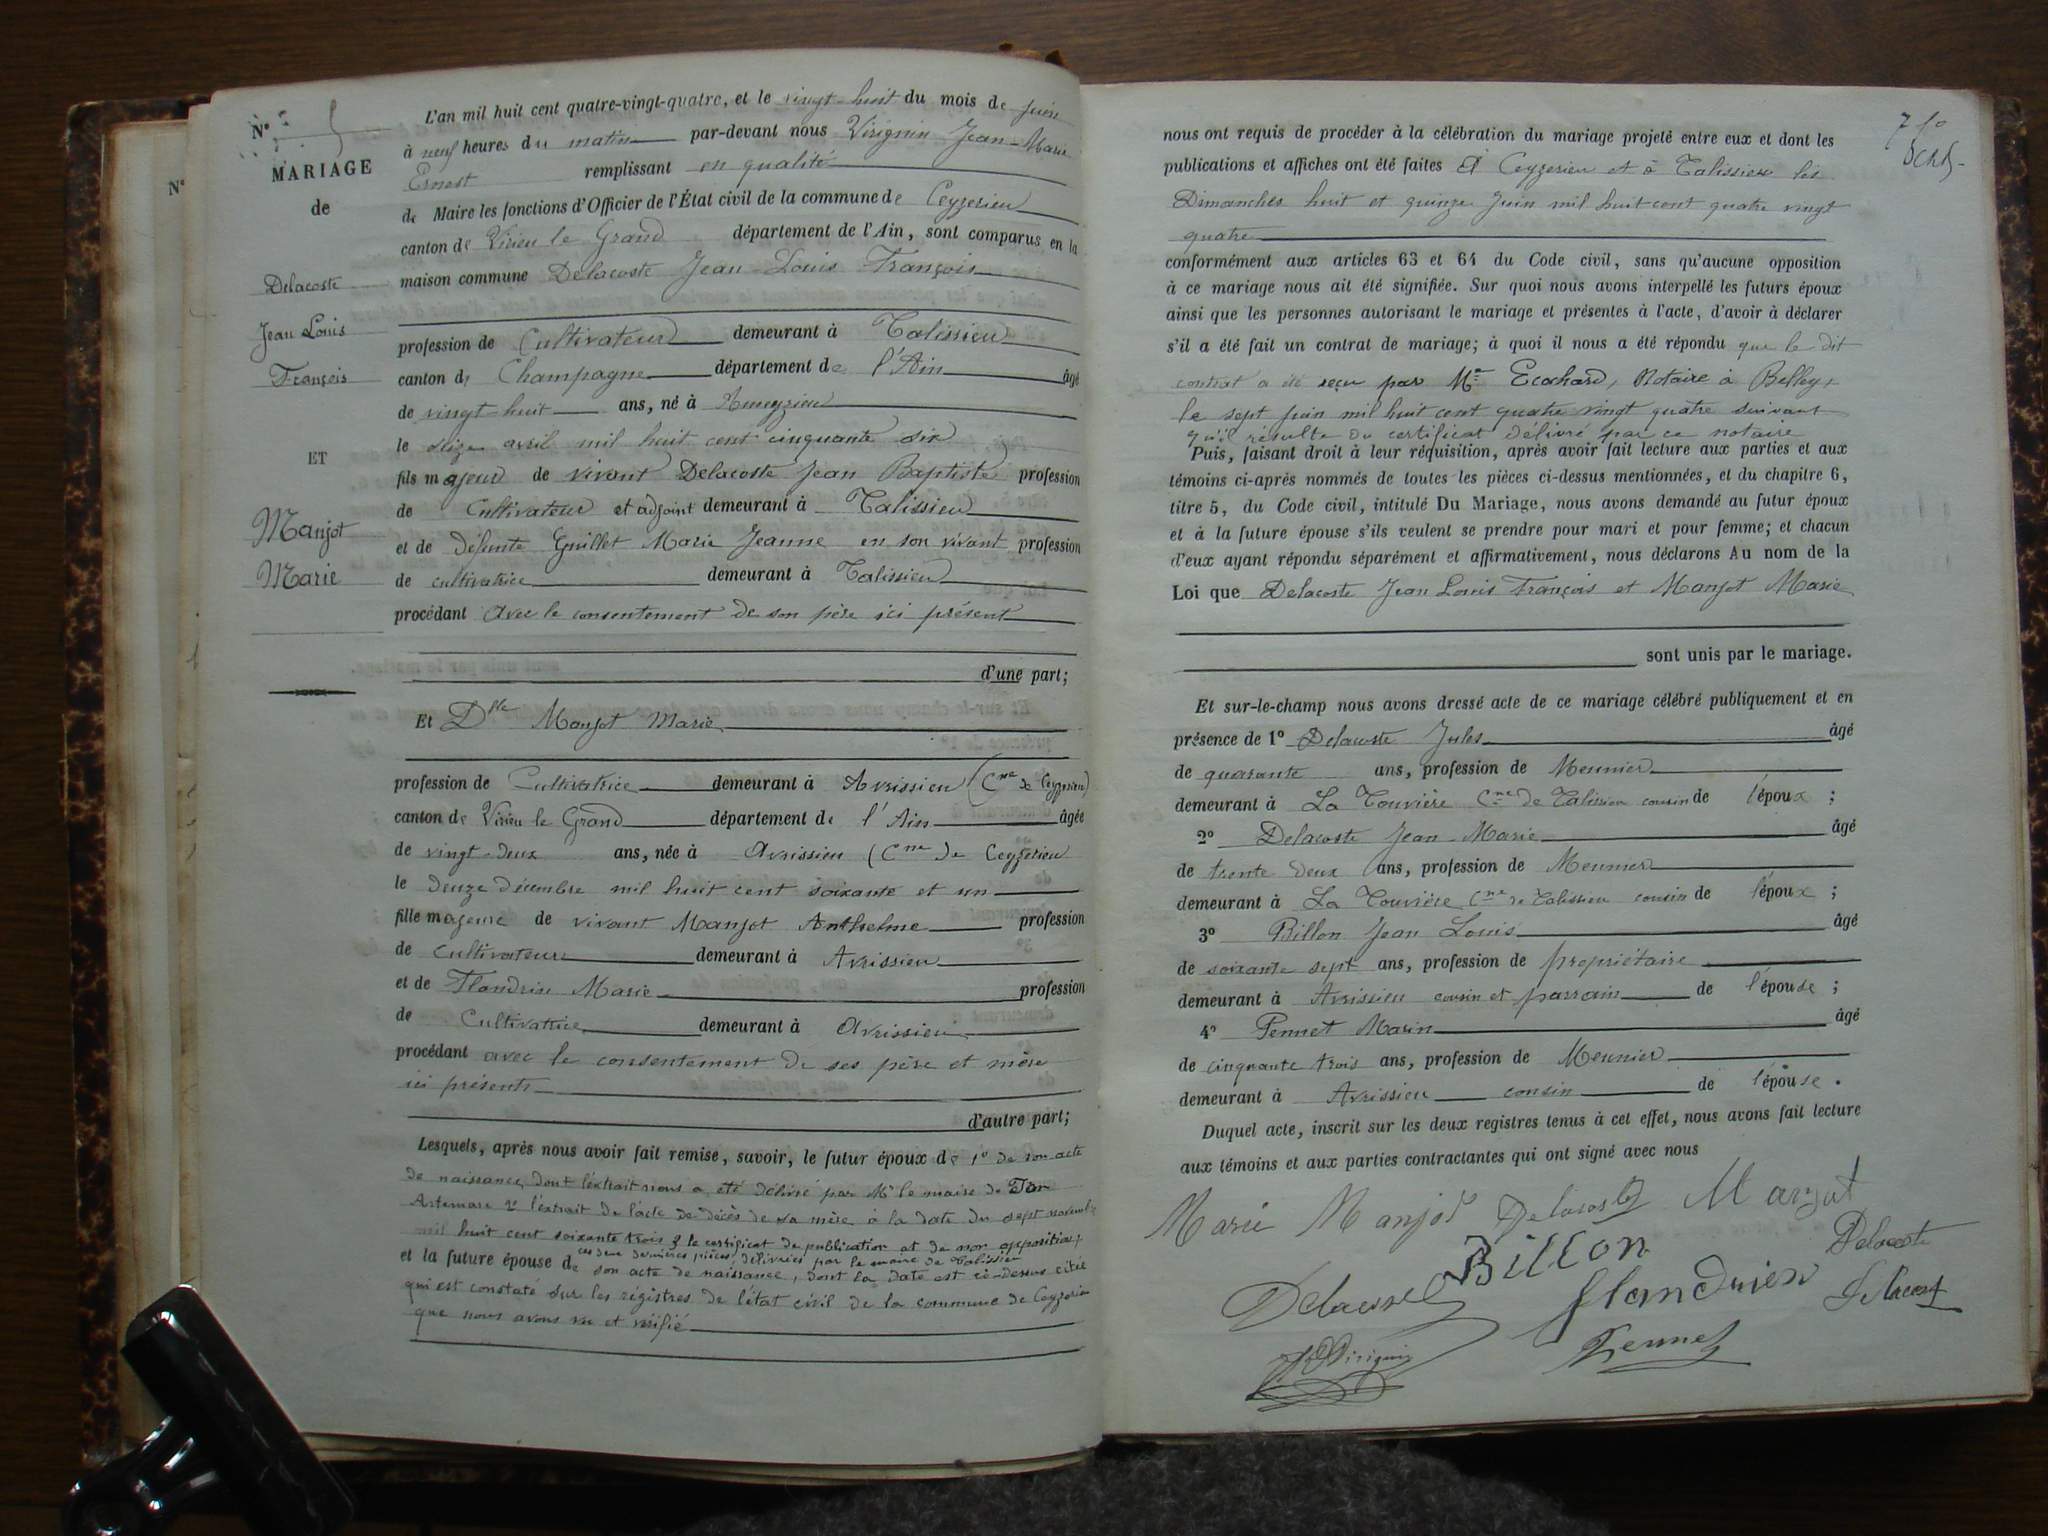 N°
MARIAGE
de
Delacoste
Jean Louis
François
ET
Manjot
Marie
N°
L'an mil huit cent quatre-vingt-quatre, et le vingt-huit du mois de juin
à neuf heures du matin par-devant nous Virignin Jean-Marie
Ernest remplissant en qualité
de Maire les fonctions d'Officier de l'État civil de la commune de Ceyzerieu
canton de Virieu le Grand département de l'Ain, sont comparus en la
maison commune Delacoste Jean-Louis François
profession de Cultivateur demeurant à Talissieu
canton de Champagne département de l'Ain âgé
de vingt-huit ans, né à Ameyzieu
le seize avril mil huit cent cinquante six
fils majeur de vivant Delacoste Jean Baptiste profession
de Cultivateur et adjoint demeurant à Talissieu
et de défunte Guillet Marie Jeanne en son vivant profession
de cultivatrice demeurant à Talissieu
procédant avec le consentement de son père ici présent
d'une part;
Et Dlle Manjot Marie
profession de Cultivatrice demeurant à Avrissieu (Cne de Ceyzerieu)
canton de Virieu le Grand département de l'Ain âgée
de vingt-deux ans, née à Avrissieu (Cne de Ceyzerieu
le douze décembre mil huit cent soixante et un
fille majeure de vivant Manjot Anthelme profession
de Cultivateur demeurant à Avrissieu
et de Flandrin Marie profession
de Cultivatrice demeurant à Avrissieu
procédant avec le consentement de ses père et mère
ici présents
d'autre part;
Lesquels, après nous avoir fait remise, savoir, le futur époux de 1° de son acte
de naissance dont l'extrait nous a été délivré par Mr le maire de
Artemare 2° l'extrait de l'acte de décès de sa mère à la date du sept novembre
mil huit cent soixante trois 3° le certificat de publication et de non opposition,
ces deux dernières pièces délivrées par le maire de Talissieu
et la future épouse de son acte de naissance, dont la date est ci-dessus citée
qui est constaté sur les registres de l'état civil de la commune de Ceyzerieu
que nous avons vu et vérifié
nous ont requis de procéder à la célébration du mariage projeté entre eux et dont les
publications et affiches ont été faites à Ceyzerieu et à Talissieu les
Dimanches huit et quinze Juin mil huit cent quatre vingt
quatre
conformément aux articles 63 et 64 du Code civil, sans qu'aucune opposition
à ce mariage nous ait été signifiée. Sur quoi nous avons interpellé les futurs époux
ainsi que les personnes autorisant le mariage et présentes à l'acte, d'avoir à déclarer
s'il a été fait un contrat de mariage; à quoi il nous a été répondu que le dit
contrat a été reçu par Me Ecochard, Notaire à Belley,
le sept juin mil huit cent quatre vingt quatre suivant
qu'il résulte du certificat délivré par ce notaire
Puis, faisant droit à leur réquisition, après avoir fait lecture aux parties et aux
témoins ci-après nommés de toutes les pièces ci-dessus mentionnées, et du chapitre 6,
titre 5, du Code civil, intitulé Du Mariage, nous avons demandé au futur époux
et à la future épouse s'ils veulent se prendre pour mari et pour femme; et chacun
d'eux ayant répondu séparément et affirmativement, nous déclarons Au nom de la
Loi que Delacoste Jean Louis François et Manjot Marie
sont unis par le mariage.
Et sur-le-champ nous avons dressé acte de ce mariage célébré publiquement et en
présence de 1° Delacoste Jules âgé
de quarante ans, profession de Meunier
demeurant à La Touvière Cne de Talissieu cousin de l'époux ;
2° Delacoste Jean-Marie âgé
de trente deux ans, profession de Meunier
demeurant à La Touvière Cne de Talissieu cousin de l'époux ;
3° Billon Jean Louis âgé
de soixante sept ans, profession de propriétaire
demeurant à Avrissieu cousin et parrain de l'épouse ;
4° Pennet Marin âgé
de cinquante trois ans, profession de Meunier
demeurant à Avrissieu cousin de l'épouse.
Duquel acte, inscrit sur les deux registres tenus à cet effet, nous avons fait lecture
aux témoins et aux parties contractantes qui ont signé avec nous
Marie Manjot Delacoste Manjot
Billon Delacoste
Delacoste flandrien Delacoste
Virignin Pennet